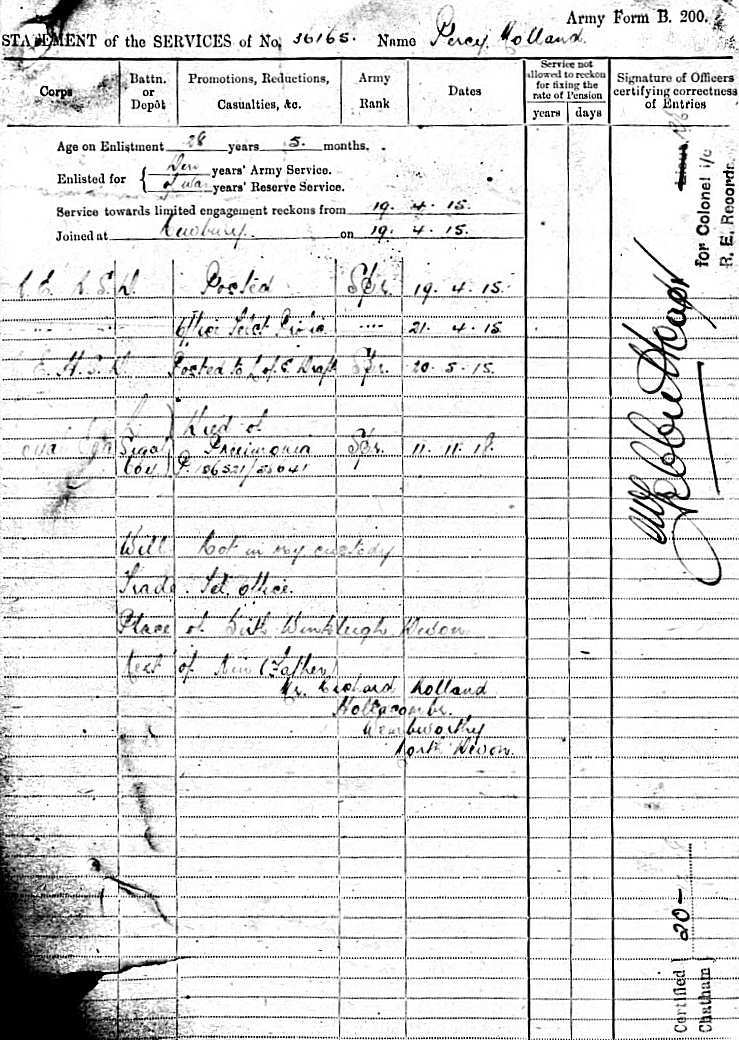 Army Form B. 200.
STATEMENT of the SERVICES of No. 36165. Name Percy Holland
Corps
Battn. or Depôt
Promotions, Reductions, Casualties, &c.
Army Rank
Dates
Service not allowed to reckon for fixing the rate of Pension
years days
Signature of Officers certifying correctness of Entries
Age on Enlistment 28 years 5. months.
Enlisted for years' Army Service.
of war years' Reserve Service.
Service towards limited engagement reckons from 19. 4. 15.
Joined at Newbury. on 19. 4. 15.
Posted Spr. 19. 4. 15.
Office 21. 4. 15.
Posted to Draft Spr. 20. 5. 15.
Died of
Signal Pneumonia Spr. 11. 11. 18.
Coy
Will Not in my custody
Trade. Tel. office.
Place of Birth Winkleigh Devon
Next of Kin (Father)
Mr. Richard Holland
Hollacombe.
Wembworthy
North Devon.
for Colonel i/c
R. E. Records.
Certified 20-
Chatham